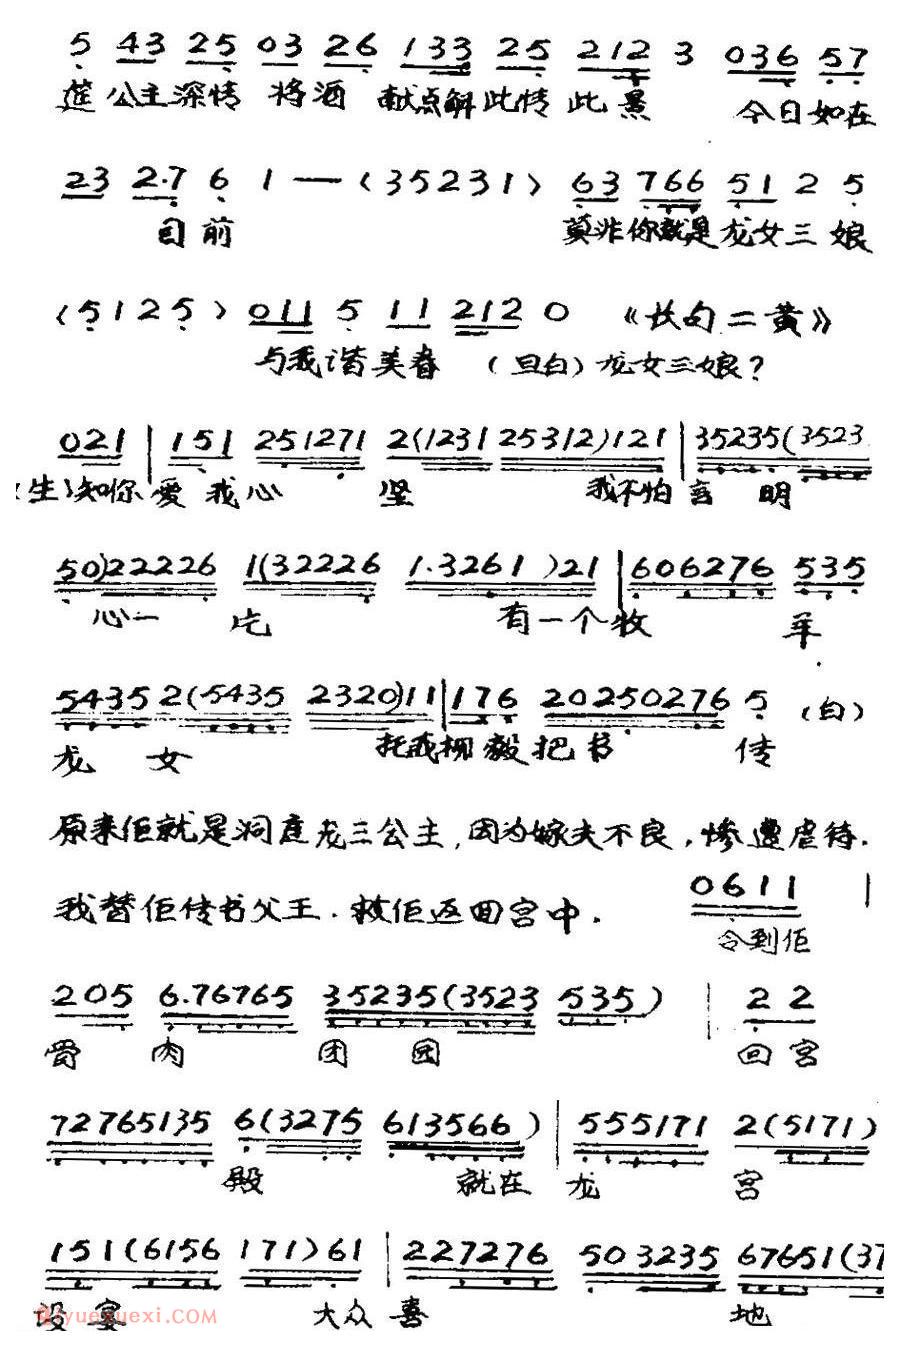 5 43 25 03 26 133 25 212 3 036 57
莲公主深情 将酒 献点解此情此景 今日如在
23 2·7 6 1 — (35231) 63 766 51 2 5
目前 莫非你就是龙女三娘
(5125) 011 5 11 212 0 《长句二黄》
与我谐美眷 (旦白)龙女三娘?
021 | 151 251271 2(1231 25312)121 | 35235(3523
(生)知你爱我心 坚 我不怕言 明
50)22226 1(32226 1·3261)21 | 606276 535
心一 片 有一个牧 羊
5435 2(5435 2320)11 | 176 20250276 5 (白)
龙 女 托我柳毅把书 传
原来佢就是洞庭龙三公主,因为嫁夫不良,惨遭虐待.
我替佢传书父王.救佢返回宫中. 0611 |
令到佢
205 6·76765 35235(3523 535) | 2 2
骨 肉 团 圆 回宫
72765135 6(3275 613566) | 555171 2(5171)
殿 就在 龙 宫
151(6156 171)61 | 227276 503235 67651(37
设宴 大众喜 地
yuexuexi.com